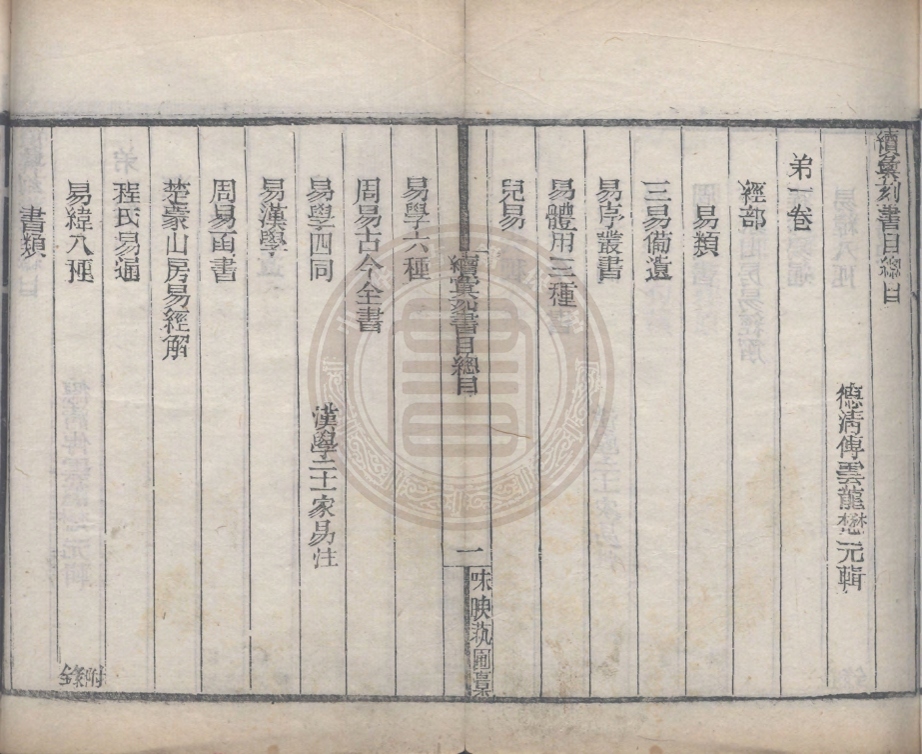 續彙刻書目總目
德清傅雲龍懋元輯
弟一卷
經部
易類
三易備遺
易序叢書
易體用三種
兒易
續彙刻書目總目
一
味腴蓺圃槀
易學六種
周易古今全書
易學四同
漢學二十一家易注
易漢學
周易函書
楚蒙山房易經解
程氏易通
易緯八種
附錄
書類